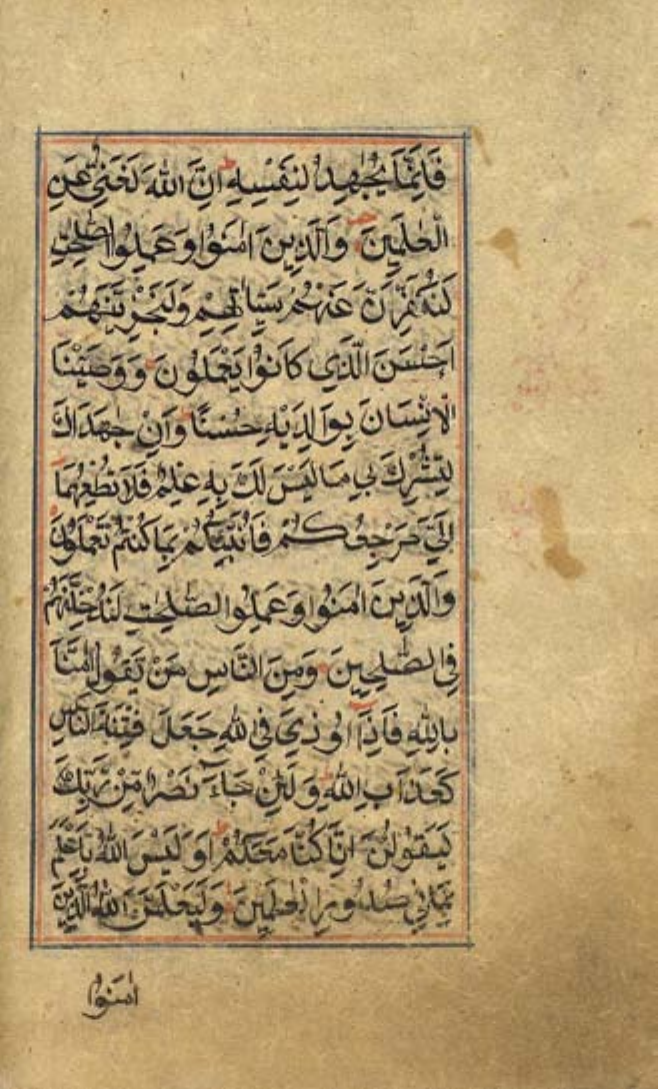 فَاِنَّمَا يُجَاهِدُ لِنَفْسِهٖ اِنَّ اللّٰهَ لَغَنِيٌّ عَنِ
الْعٰلَمِيْنَ وَالَّذِيْنَ اٰمَنُوْا وَعَمِلُوا الصّٰلِحٰتِ
لَنُكَفِّرَنَّ عَنْهُمْ سَيِّاٰتِهِمْ وَلَنَجْزِيَنَّهُمْ
اَحْسَنَ الَّذِيْ كَانُوْا يَعْمَلُوْنَ وَوَصَّيْنَا
الْاِنْسَانَ بِوَالِدَيْهِ حُسْنًا وَاِنْ جٰهَدَاكَ
لِتُشْرِكَ بِيْ مَا لَيْسَ لَكَ بِهٖ عِلْمٌ فَلَا تُطِعْهُمَا
اِلَيَّ مَرْجِعُكُمْ فَاُنَبِّئُكُمْ بِمَا كُنْتُمْ تَعْمَلُوْنَ
وَالَّذِيْنَ اٰمَنُوْا وَعَمِلُوا الصّٰلِحٰتِ لَنُدْخِلَنَّهُمْ
فِي الصّٰلِحِيْنَ وَمِنَ النَّاسِ مَنْ يَّقُوْلُ اٰمَنَّا
بِاللّٰهِ فَاِذَا اُوْذِيَ فِي اللّٰهِ جَعَلَ فِتْنَةَ النَّاسِ
كَعَذَابِ اللّٰهِ وَلَئِنْ جَاءَ نَصْرٌ مِّنْ رَّبِّكَ
لَيَقُوْلُنَّ اِنَّا كُنَّا مَعَكُمْ اَوَلَيْسَ اللّٰهُ بِاَعْلَمَ
بِمَا فِيْ صُدُوْرِ الْعٰلَمِيْنَ وَلَيَعْلَمَنَّ اللّٰهُ الَّذِيْنَ
اٰمَنُوْا